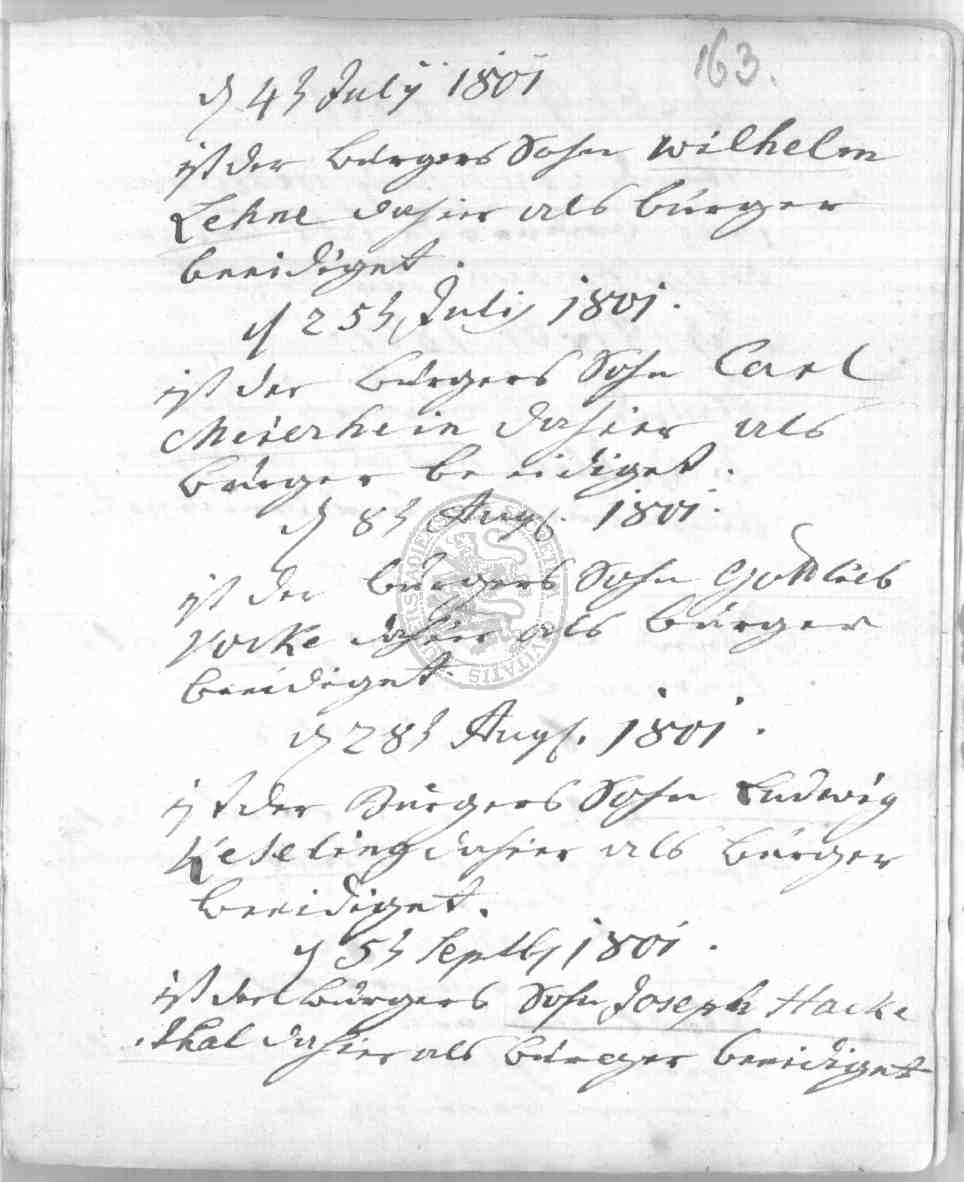 163.
d 4t July 1801
ist der bürgers Sohn Wilhelm
Lehne dahier als bürger
beeidiget.
d 25t July 1801.
ist der bürgers Sohn Carl
Meierhein dahier als
bürger beeidiget.
d 8t Augs. 1801.
ist der bürgers Sohn Gottlieb
Vocke dahier als bürger
beeidiget.
d 28t Augs. 1801.
ist der Bürgers Sohn Ludwig
Keseling dahier als bürger
beeidiget.
d 5t Septbr 1801.
ist der bürgers Sohn Joseph Hacke
thal dahier als bürger beeidiget